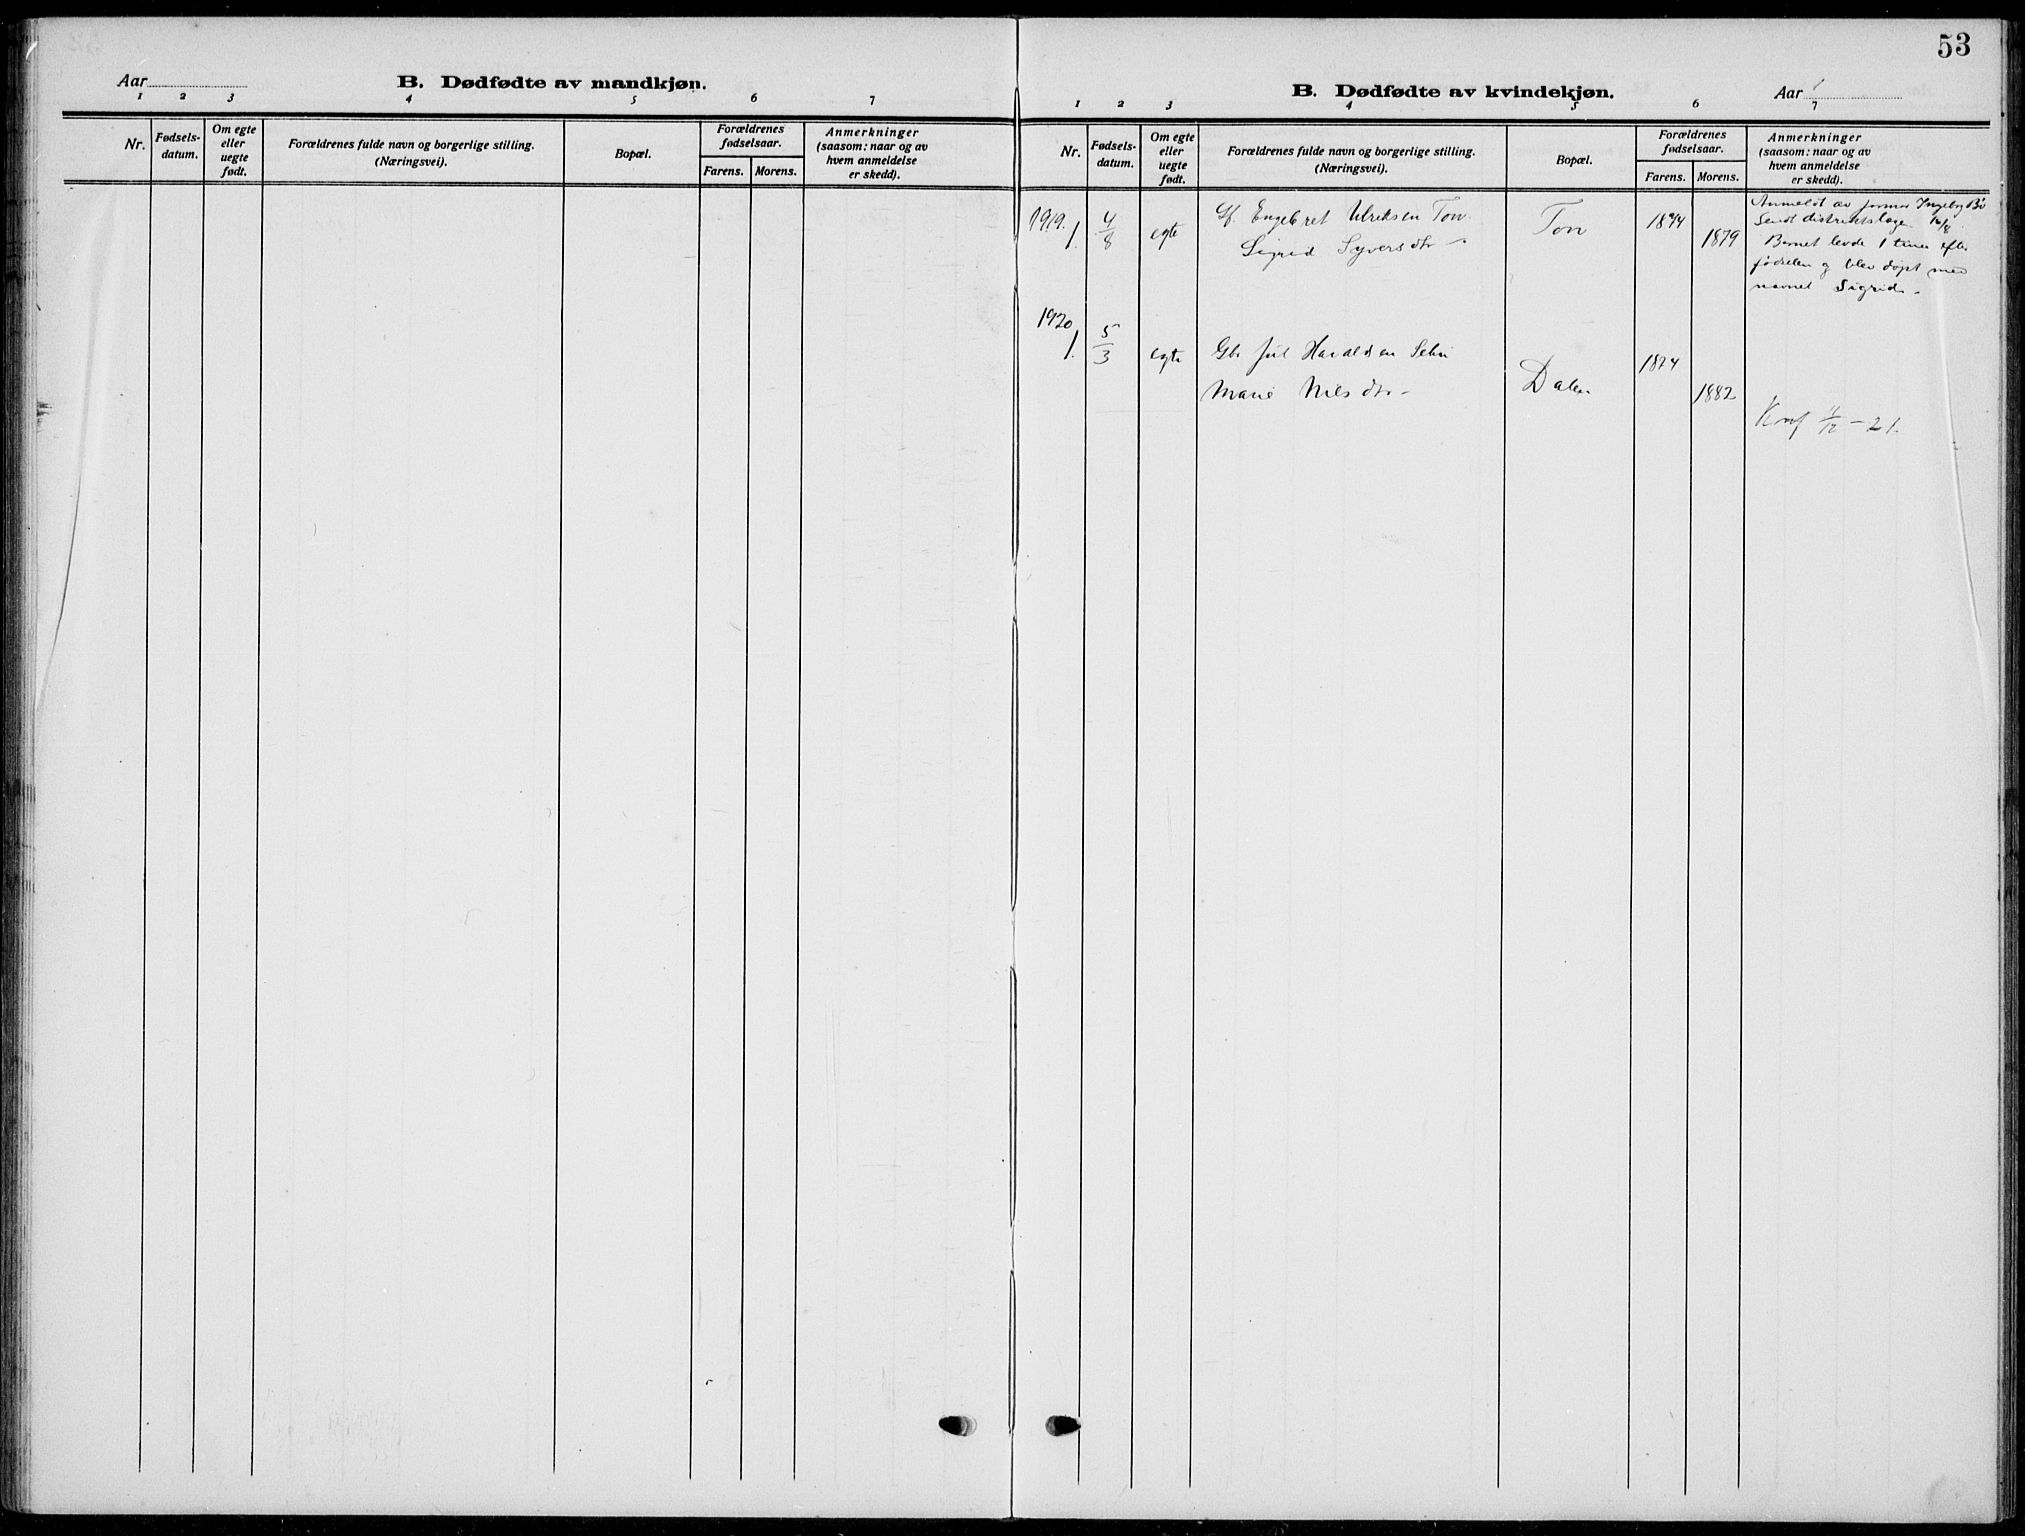 53
Aar
B. Dødfødte av mandkjøn.
1 2 3 4 5 6 7
Nr.
Fødsels-
datum.
Om egte
eller
uegte
født.
Forældrenes fulde navn og borgerlige stilling.
(Næringsvei).
Bopæl.
Forældrenes
fødselsaar.
Farens. Morens.
Anmerkninger
(saasom: naar og av
hvem anmeldelse
er skedd).
B. Dødfødte av kvindekjøn.
Aar
1 2 3 4 5 6 7
Nr.
Fødsels-
datum.
Om egte
eller
uegte
født.
Forældrenes fulde navn og borgerlige stilling.
(Næringsvei).
Bopæl.
Forældrenes
fødselsaar.
Farens. Morens.
Anmerkninger
(saasom: naar og av
hvem anmeldelse
er skedd).
1919.
1. 4/8 egte Engebret Ulriksen Ton
Sigrid Syversdtr
Ton
1874
1879
Anmeldt av jormor Ingeborg Bø
Sendt distriktslægen 16/8.
Barnet levde 1 time efter
fødselen og blev døpt med
navnet Sigrid.
1920
1. 5/3 egte Gbr Jul Haraldsen
Marie Nilsdtr
Dalen
1874
1882
Konf 11/12 - 21.